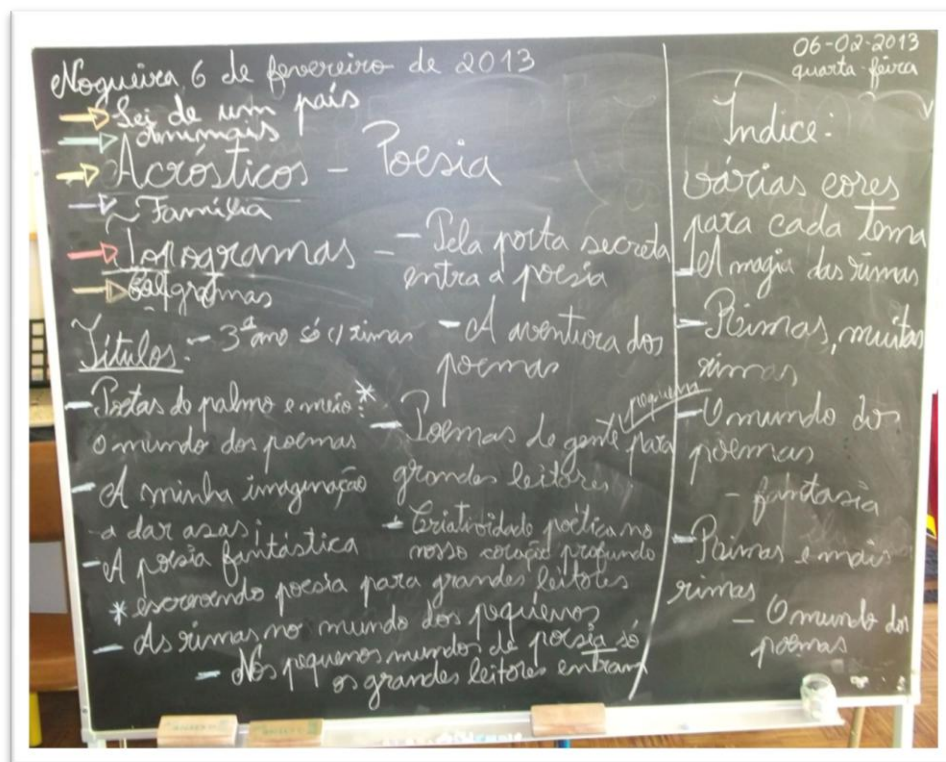 Nogueira 6 de fevereiro de 2013
Sei de um país
Animais
Acrósticos - Poesia
Família
Topogramas
Caligramas
Títulos: - 3º ano só c/ rimas
- Poetas do palmo e meio *
o mundo dos poemas
- A minha imaginação
a dar asas!
- A poesia fantástica
* escrevendo poesia para grandes leitores
- As rimas no mundo dos pequenos
- Nos pequenos mundos de poesia só
os grandes leitores entram
- Pela porta secreta
entra a poesia
- A aventura dos
poemas
- Poemas de gente pequena para
grandes leitores
- Criatividade poética no
nosso coração profundo
06-02-2013
quarta-feira
Índice:
várias cores
para cada tema
- A magia das rimas
- Rimas, muitas
rimas
- O mundo dos
poemas
- fantasia
- Rimas e mais
rimas
- O mundo dos
poemas